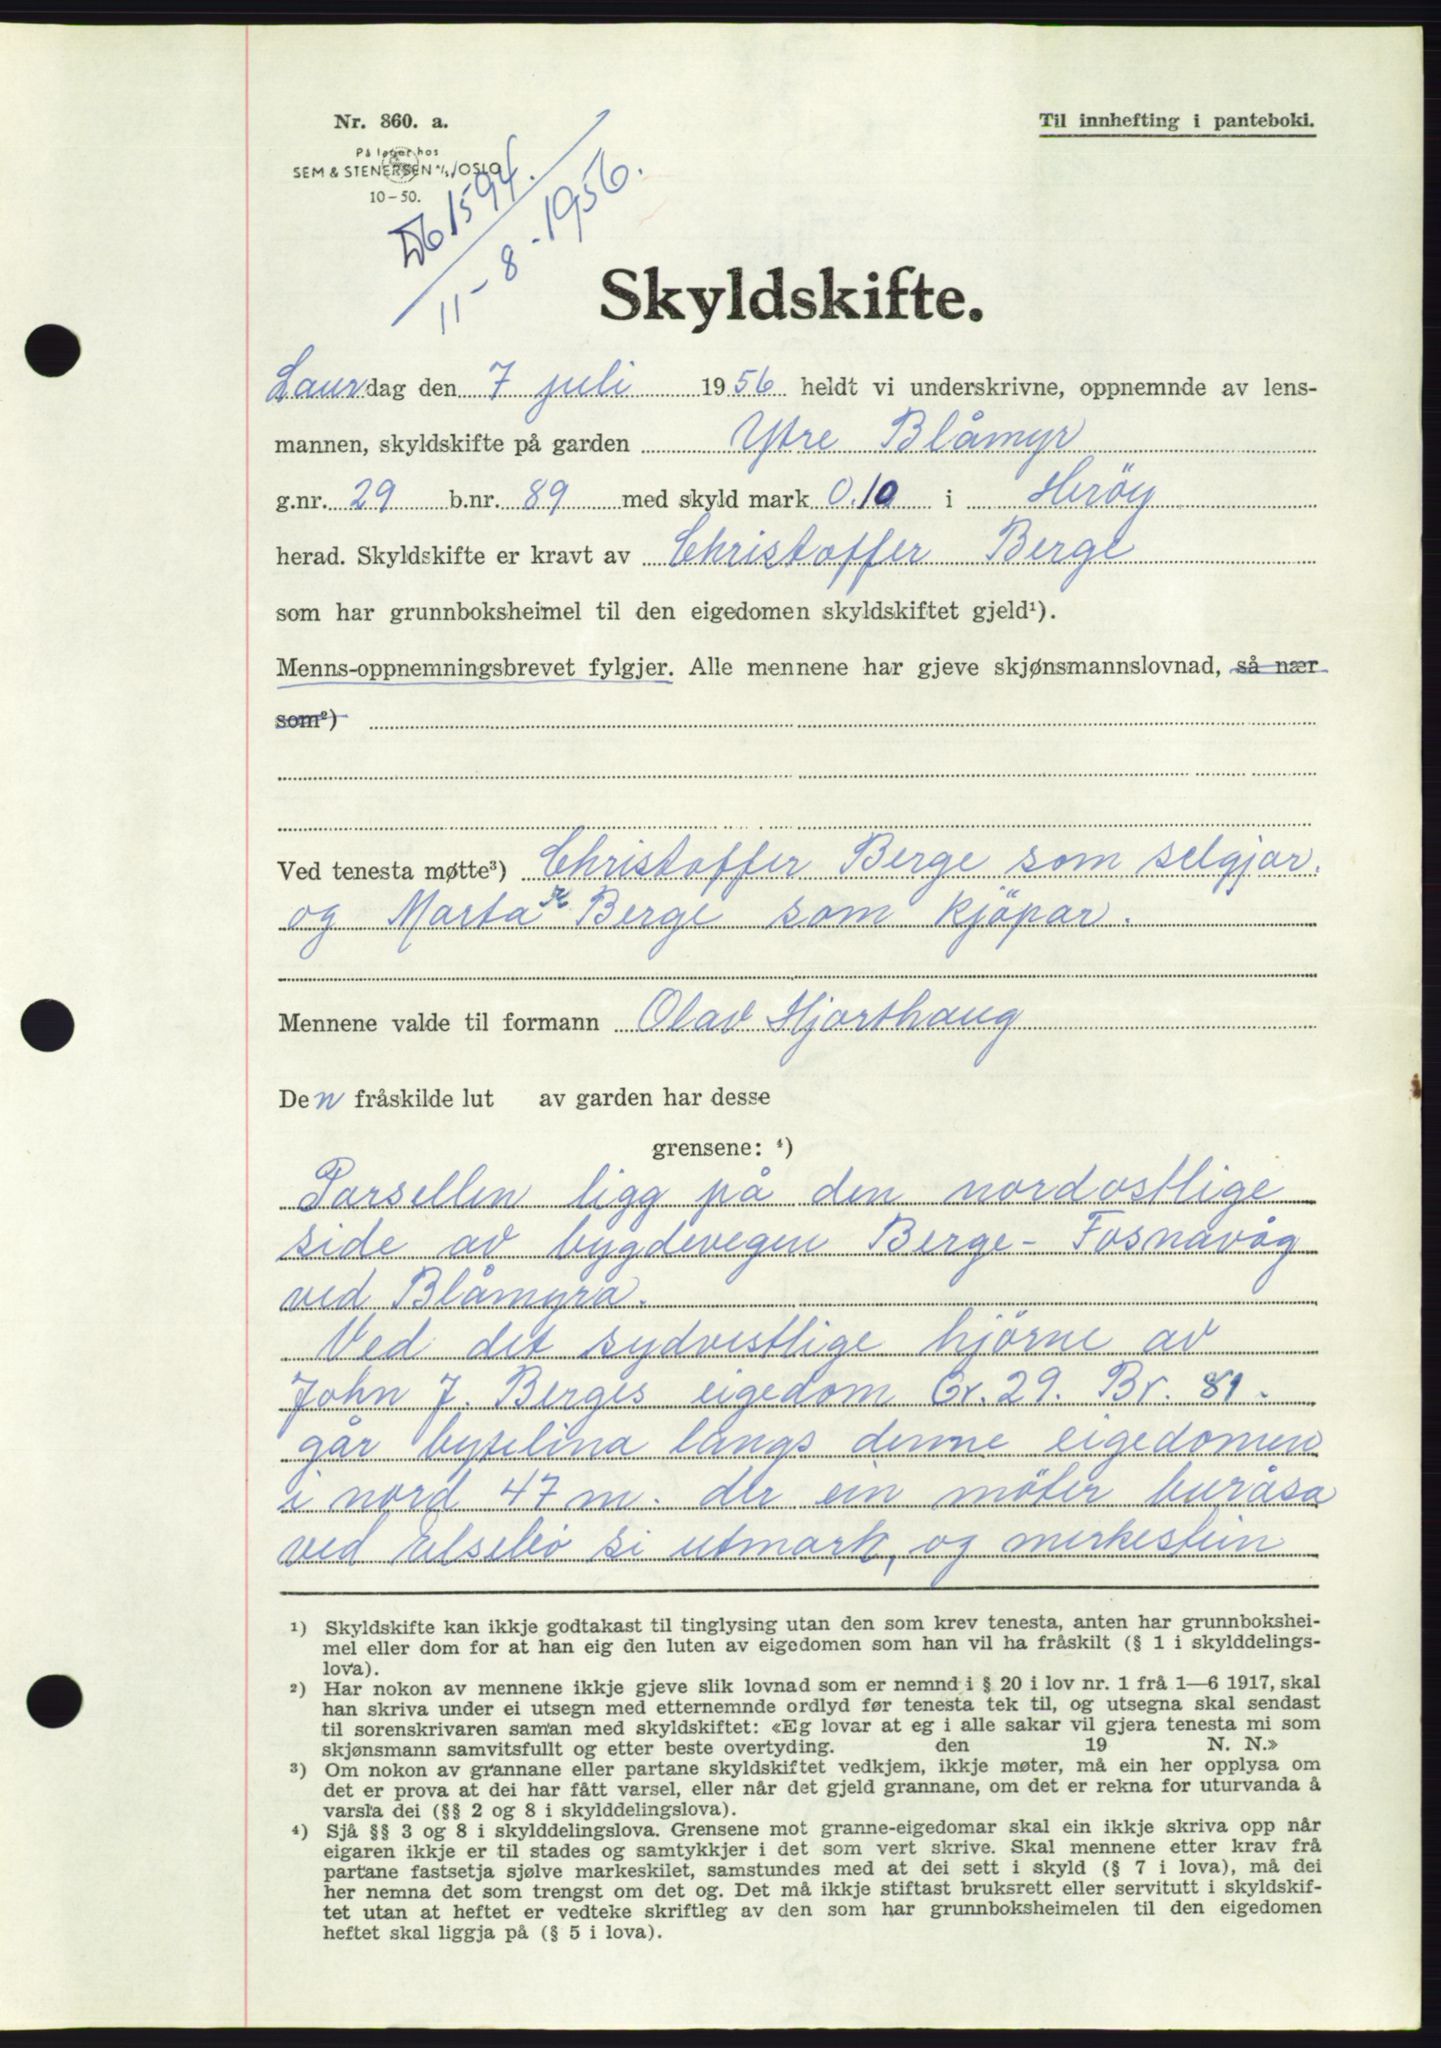 Nr. 860. a.
Til innhefting i panteboki.
På lager hos
SEM & STENERSEN A/S, OSLO
10-50.
Db 1594.
11-8-1956.
Skyldskifte.
Laurdag den 7 juli 1956 heldt vi underskrivne, oppnemnde av lens-
mannen, skyldskifte på garden Ytre Blåmyr
g.nr. 29 b.nr. 89 med skyld mark 0.10 i Herøy
herad. Skyldskifte er kravt av Christoffer Berge
som har grunnboksheimel til den eigedomen skyldskiftet gjeld¹).
Menns-oppnemningsbrevet fylgjer. Alle mennene har gjeve skjønsmannslovnad, så nær
som²)
Ved tenesta møtte³) Christoffer Berge som selgjar.
og Marta K Berge som kjöpar.
Mennene valde til formann Olav Hjorthaug
Den fråskilde lut av garden har desse
grensene: ⁴)
Parsellen ligg på den nordostlige
side av bygdevegen Berge-Fosnavåg
ved Blåmyra.
Ved det sydvestlige hjörne av
John J. Berges eigedom Gr. 29. Br. 81.
går bytelina langs denne eigedomen
i nord 47 m. der ein möter buråsa
ved Elsebö si utmark, og merkestein
¹) Skyldskifte kan ikkje godtakast til tinglysing utan den som krev tenesta, anten har grunnbokshei-
mel eller dom for at han eig den luten av eigedomen som han vil ha fråskilt (§ 1 i skylddelings-
lova).
²) Har nokon av mennene ikkje gjeve slik lovnad som er nemnd i § 20 i lov nr. 1 frå 1—6 1917, skal
han skriva under ei utsegn med etternemnde ordlyd før tenesta tek til, og utsegna skal sendast
til sorenskrivaren saman med skyldskiftet: «Eg lovar at eg i alle sakar vil gjera tenesta mi som
skjønsmann samvitsfullt og etter beste overtyding. den 19 N. N.»
³) Om nokon av grannane eller partane skyldskiftet vedkjem, ikkje møter, må ein her opplysa om
det er prova at dei har fått varsel, eller når det gjeld grannane, om det er rekna for uturvanda å
varsla dei (§§ 2 og 8 i skylddelingslova).
⁴) Sjå §§ 3 og 8 i skylddelingslova. Grensene mot granne-eigedomar skal ein ikkje skriva opp når
eigaren ikkje er til stades og samtykkjer i det som vert skrive. Skal mennene etter krav frå
partane fastsetja sjølve markeskilet, samstundes med at dei sett i skyld (§ 7 i lova), må dei
her nemna det som trengst om det og. Det må ikkje stiftast bruksrett eller servitutt i skyldskif-
tet utan at heftet er vedteke skriftleg av den som har grunnboksheimelen til den eigedomen
heftet skal liggja på (§ 5 i lova).